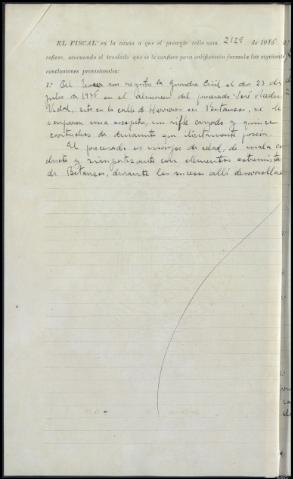 EL FISCAL en la causa a que el presente rollo núm. 2129 de 1936
refiere, evacuando el traslado que se le confiere para calificación formula las siguientes
conclusiones provisionales:
1ª Del registro la Guardia Civil el día 23 de
julio de 1936 en el almacen del procesado José
Vidal, sito en la calle de Herreros en Betanzos, se le
una escopeta, un rifle cargado y quince
cartuchos de dinamita que ilicitamente poseia.
El procesado es mayor de edad, de mala con
ducta y simpatizante con elementos extremistas
de Betanzos, durante los sucesos alli desarrollados